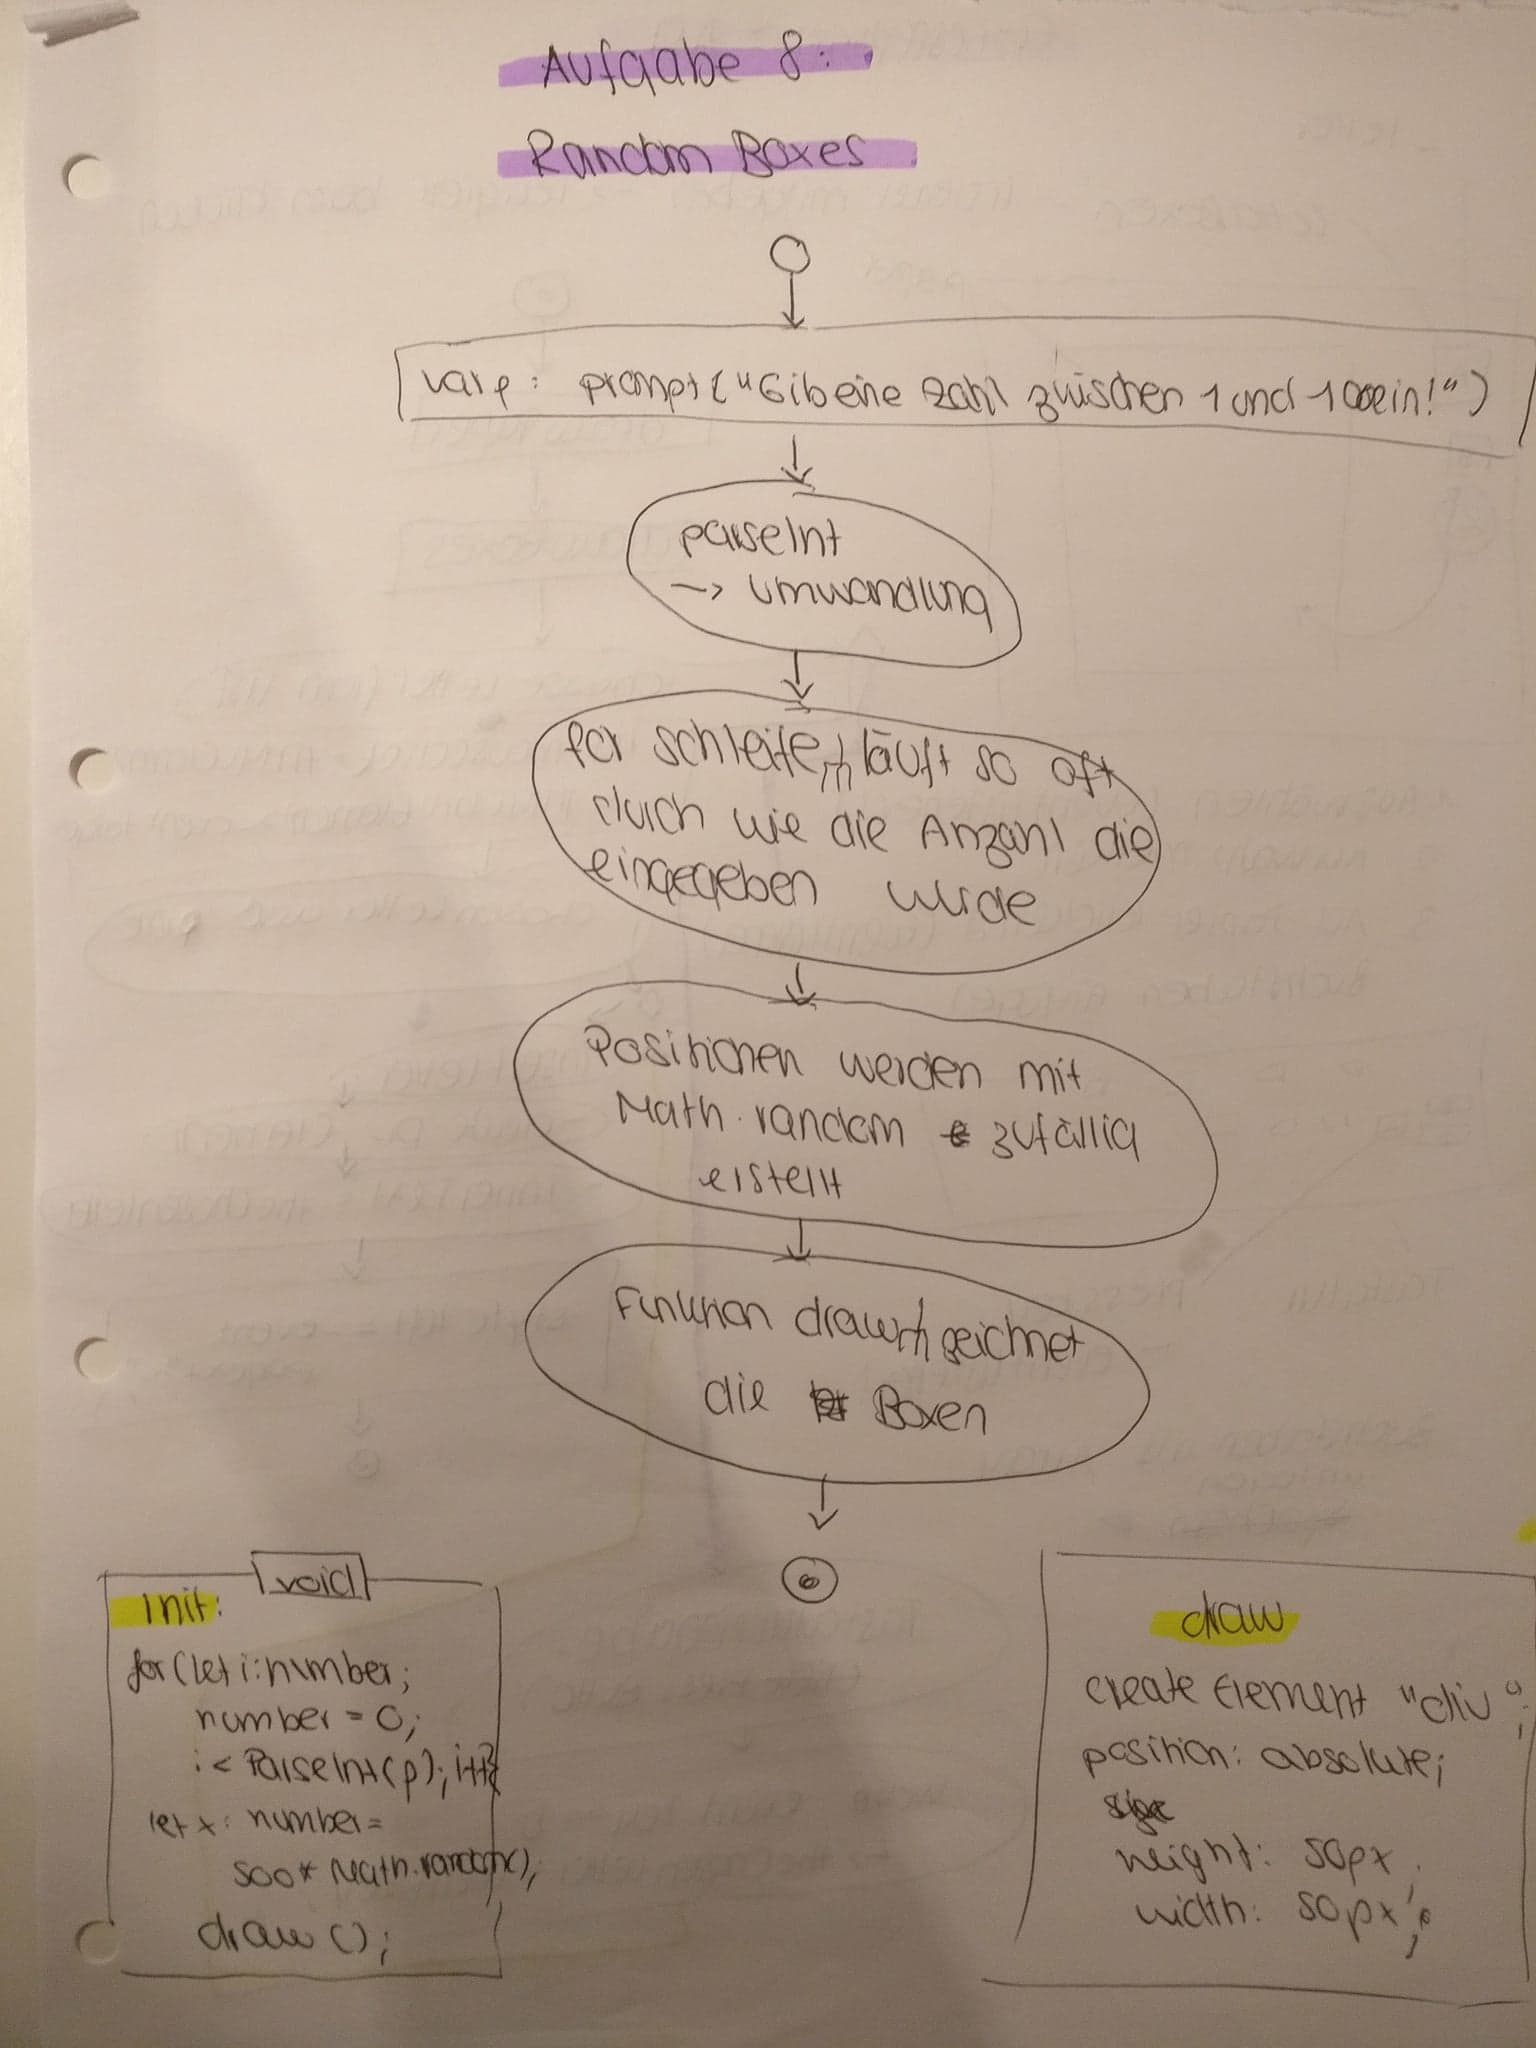 Aufgabe 8:
Random Boxes
var p: prompt("Gib eine Zahl zwischen 1 und 100 ein!")
parseInt
-> Umwandlung
for schleife, läuft so oft
durch wie die Anzahl die
eingegeben wurde
Positionen werden mit
Math.random zufällig
erstellt
Funktion draw zeichnet
die Boxen
void
Init:
for (let i: number;
number = 0;
i < ParseInt(p); i++{
let x: number =
500* Math.random();
draw ();
draw
create Element "div";
position: absolute;
height: 50px;
width: 50px;